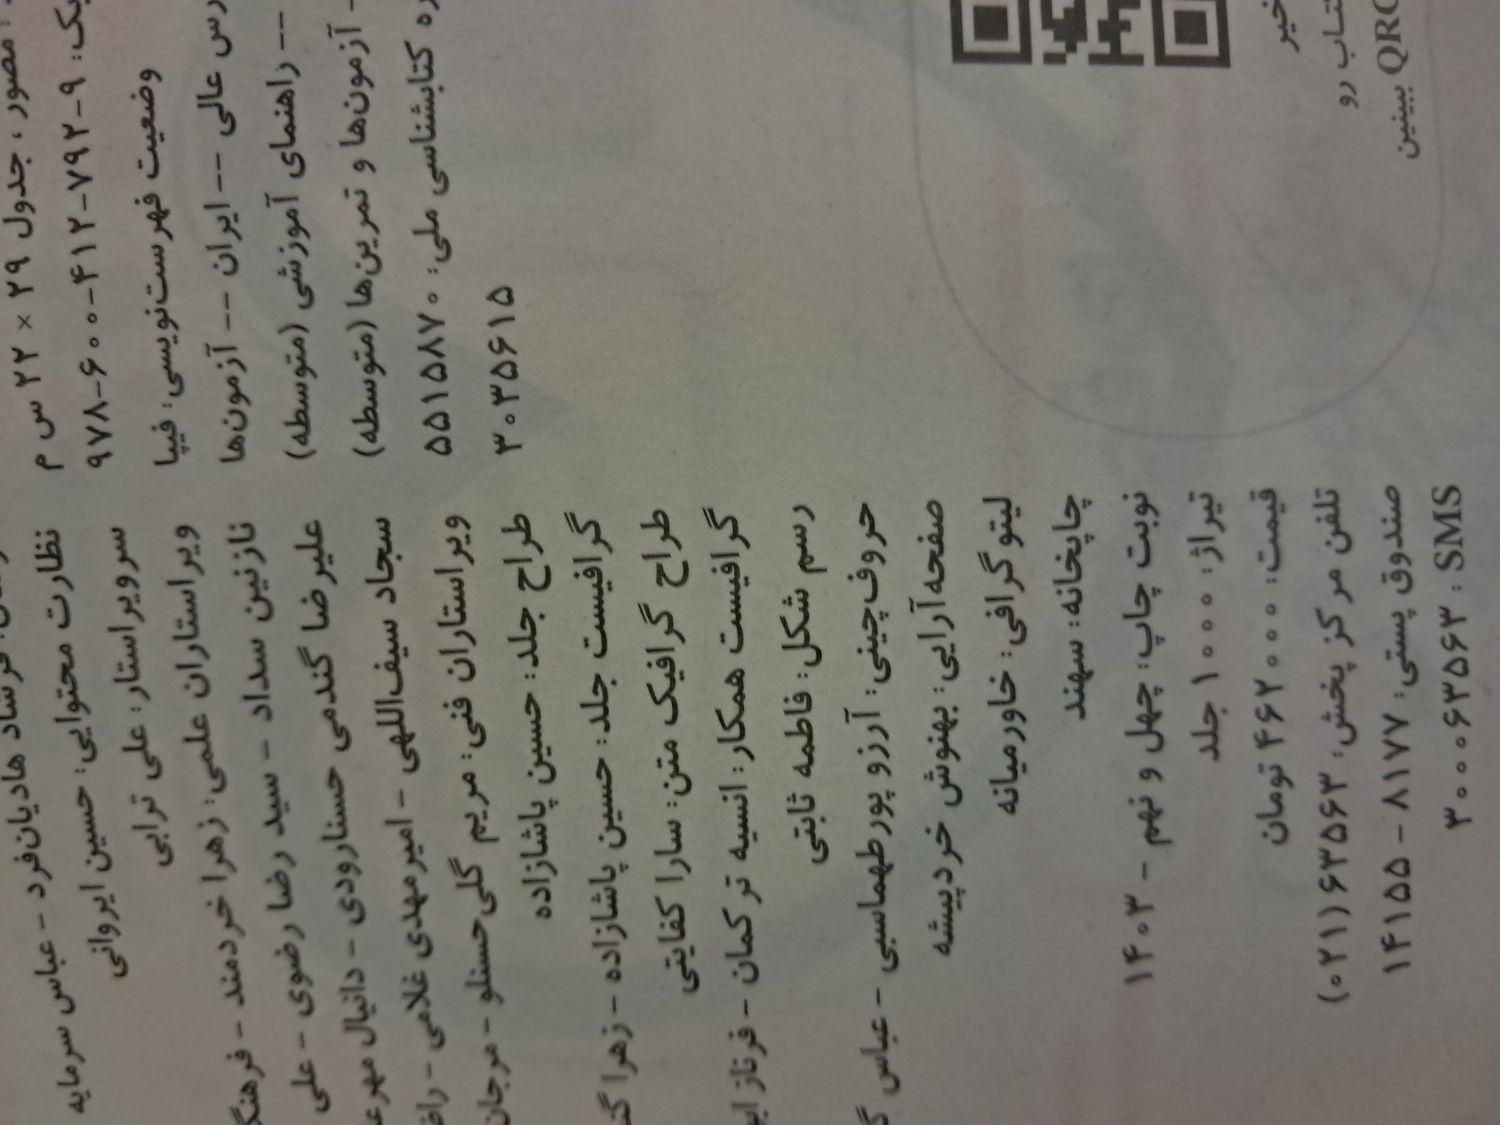 مصور، جدول ۲۹ × ۲۲ س م
۹۷۸-۶۰۰-۴۱۲-۷۹۲-۹
وضعیت فهرست‌نویسی: فیپا
عالی -- ایران -- آزمون‌ها
-- راهنمای آموزشی (متوسطه)
- آزمون‌ها و تمرین‌ها (متوسطه)
کتابشناسی ملی: ۵۵۱۵۸۷۰
۳۰۳۵۶۱۵
هادیان‌فرد - عباس سرمایه
نظارت محتوایی: حسین ایروانی
سرویراستار: علی ترابی
ویراستاران علمی: زهرا خردمند -
نازنین سداد - سید رضا رضوی - علی
علیرضا گندمی حسنارودی - دانیال
سجاد سیف‌اللهی - امیرمهدی غلامی -
ویراستاران فنی: مریم گلی‌حسنلو - مرجان
طراح جلد: حسین پاشازاده
گرافیست جلد: حسین پاشازاده - زهرا
طراح گرافیک متن: سارا کفایتی
گرافیست همکار: انسیه ترکمان - فرناز
رسم شکل: فاطمه ثابتی
حروف‌چینی: آرزو پورطهماسبی - عباس
صفحه‌آرایی: بهنوش خردپیشه
لیتوگرافی: خاورمیانه
چاپخانه: سهند
نوبت چاپ: چهل و نهم - ۱۴۰۳
تیراژ: ۱۰۰۰ جلد
قیمت: ۴۶۲۰۰۰ تومان
تلفن مرکز پخش: ۶۳۵۶۳(۰۲۱)
صندوق پستی: ۸۱۷۷ - ۱۴۱۵۵
SMS: ۳۰۰۰۶۳۵۶۳
رو
QRC ببینین